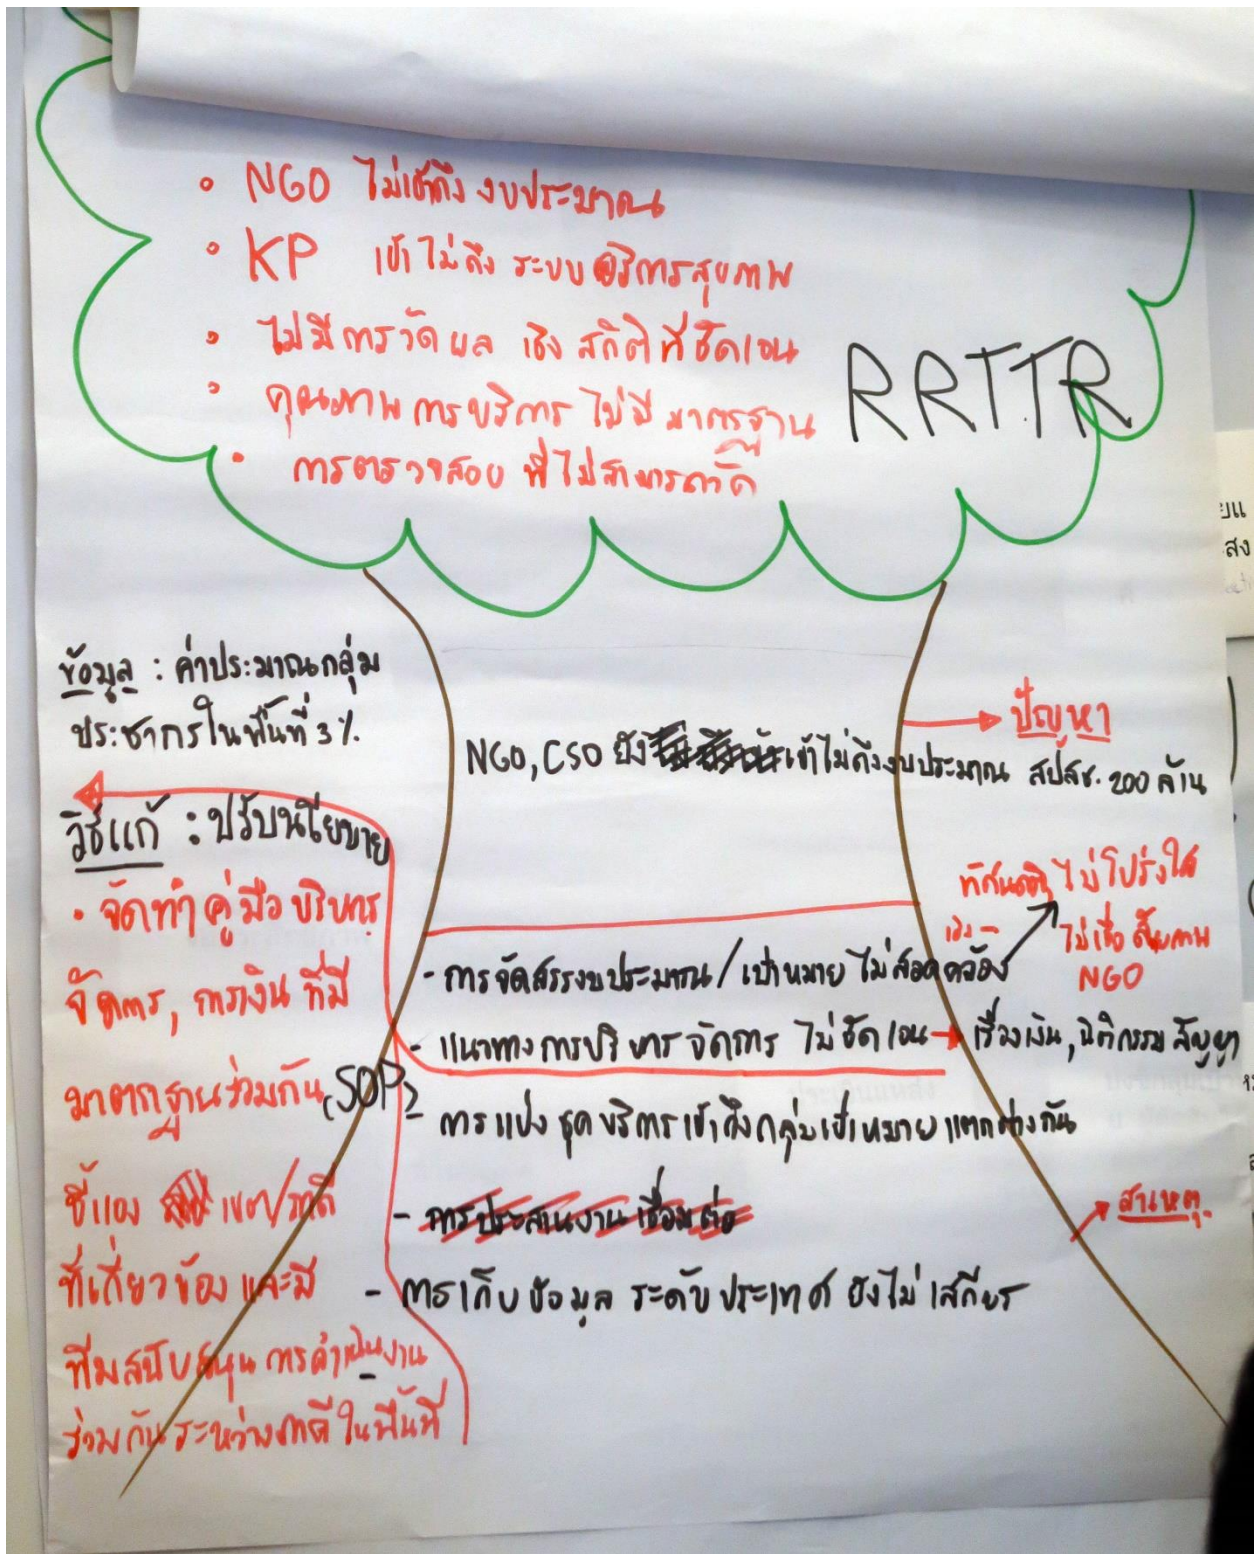 • NGO ไม่เข้าถึง งบประมาณ
• KP เข้าไม่ถึง ระบบบริการสุขภาพ
• ไม่มีการวัดผล เชิงสถิติที่ชัดเจน
• คุณภาพการบริการ ไม่มีมาตรฐาน
• การตรวจสอบ ที่ไม่สามารถวัด
RRTTR
ข้อมูล : ค่าประมาณกลุ่ม
ประชากรในพื้นที่ 3%.
ปัญหา
NGO, CSO ยัง เข้าไม่ถึงงบประมาณ สปสช. 200 ล้าน
วิธีแก้ : ปรับนโยบาย
• จัดทำคู่มือ บริหาร
จัดการ, การเงิน ที่มี
มาตรฐานร่วมกัน (SOP)
ชี้แจง เขต/ภาคี
ที่เกี่ยวข้อง และมี
ทีมสนับสนุน การดำเนินงาน
ร่วมกันระหว่างภาคี ในพื้นที่
ทัศนคติ ไม่โปร่งใส
เชิง -
ไม่เชื่อ ศักยภาพ
NGO
- การจัดสรรงบประมาณ / เป้าหมาย ไม่สอดคล้อง
- แนวทางการบริหารจัดการ ไม่ชัดเจน → เรื่องเงิน, นิติกรรมสัญญา
- การแบ่งชุดบริการเข้าถึงกลุ่มเป้าหมายแตกต่างกัน
- การประสานงาน เชื่อมต่อ
- การเก็บข้อมูล ระดับประเทศ ยังไม่เสถียร
สาเหตุ